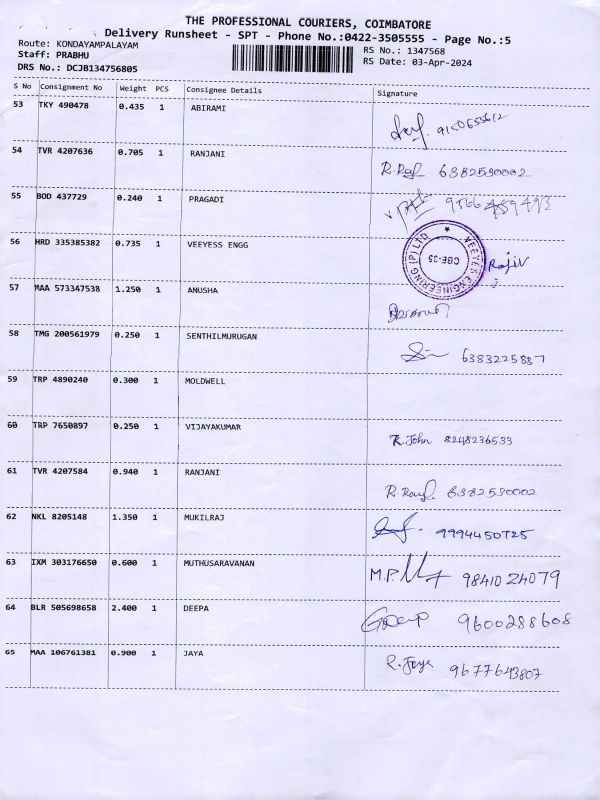 THE PROFESSIONAL COURIERS, COIMBATORE
Delivery Runsheet - SPT - Phone No.:0422-3505555 - Page No.:5
Route: KONDAYAMPALAYAM
Staff: PRABHU
DRS No.: DCJB134756805
RS No.: 1347568
RS Date: 03-Apr-2024
S No Consignment No Weight PCS Consignee Details Signature
53 TKY 490478 0.435 1 ABIRAMI
54 TVR 4207636 0.705 1 RANJANI R. Raj 6382590002
55 BOD 437729 0.240 1 PRAGADI
56 HRD 335385382 0.735 1 VEEYESS ENGG VEEYES ENGINEERING (P) LTD CBE-35 Rajiv
57 MAA 573347538 1.250 1 ANUSHA
58 TMG 200561979 0.250 1 SENTHILMURUGAN
59 TRP 4890240 0.300 1 MOLDWELL
60 TRP 7650897 0.250 1 VIJAYAKUMAR K. John 8248236533
61 TVR 4207584 0.940 1 RANJANI 6382590002
62 NKL 8205148 1.350 1 MUKILRAJ 9994450725
63 IXM 303176650 0.600 1 MUTHUSARAVANAN M.P. 9841024079
64 BLR 505698658 2.400 1 DEEPA 9600288608
65 MAA 106761381 0.900 1 JAYA R. Jaya 9677643807